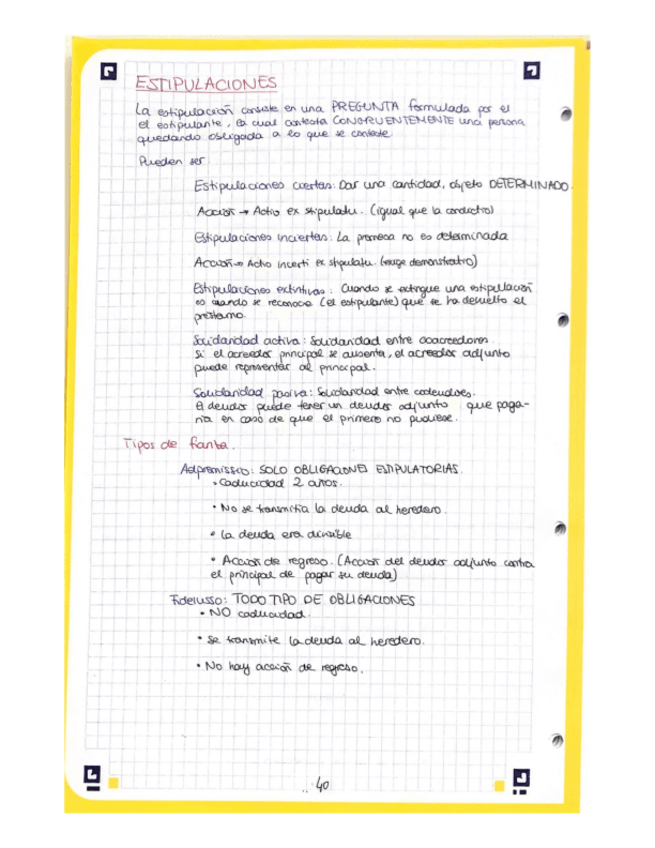 ESTIPULACIONES
La estipulación consiste en una PREGUNTA formulada por el
el estipulante, la cual contesta CONGRUENTEMENTE una persona
quedando obligada a lo que se conteste.
Pueden ser
Estipulaciones ciertas: Dar una cantidad, objeto DETERMINADO.
Acción → Actio ex stipulatu. (igual que la condictio)
Estipulaciones inciertas: La promesa no es determinada
Acción → Actio incerti ex stipulatu. (exige demonstratio)
Estipulaciones extintivas: Cuando se extingue una estipulación
es cuando se reconoce (el estipulante) que se ha devuelto el
préstamo.
Solidaridad activa: Solidaridad entre coacreedores.
Si el acreedor principal se ausenta, el acreedor adjunto
puede representar al principal.
Solidaridad pasiva: Solidaridad entre codeudores.
El deudor puede tener un deudor adjunto que paga-
ría en caso de que el primero no pudiese.
Tipos de fianza.
Adpromissio: SOLO OBLIGACIONES ESTIPULATORIAS.
• Caducidad 2 años.
• No se transmitía la deuda al heredero.
• La deuda era divisible
• Acción de regreso. (Acción del deudor adjunto contra
el principal de pagar su deuda)
Fideiusso: TODO TIPO DE OBLIGACIONES
• NO caducidad.
• Se transmite la deuda al heredero.
• No hay acción de regreso.
40